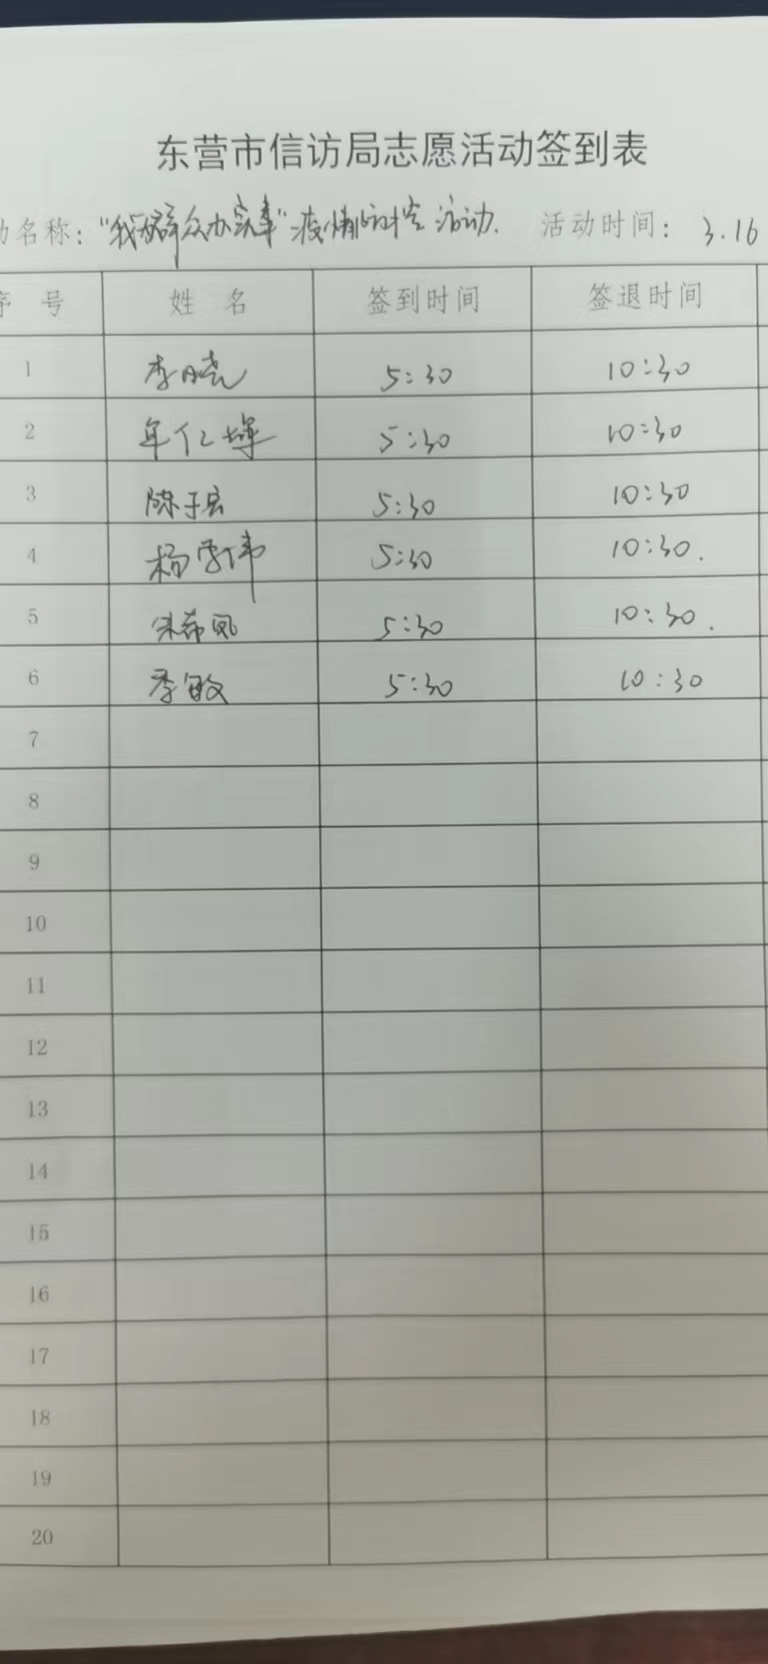 东营市信访局志愿活动签到表
动名称：“我为群众办实事”疫情防控活动. 活动时间：3.16
序 号 姓 名 签到时间 签退时间
1 李晓 5:30 10:30
2 5:30 10:30
3 陈子宏 5:30 10:30
4 杨学伟 5:30 10:30.
5 朱希凤 5:30 10:30.
6 李敏 5:30 10:30
7
8
9
10
11
12
13
14
15
16
17
18
19
20